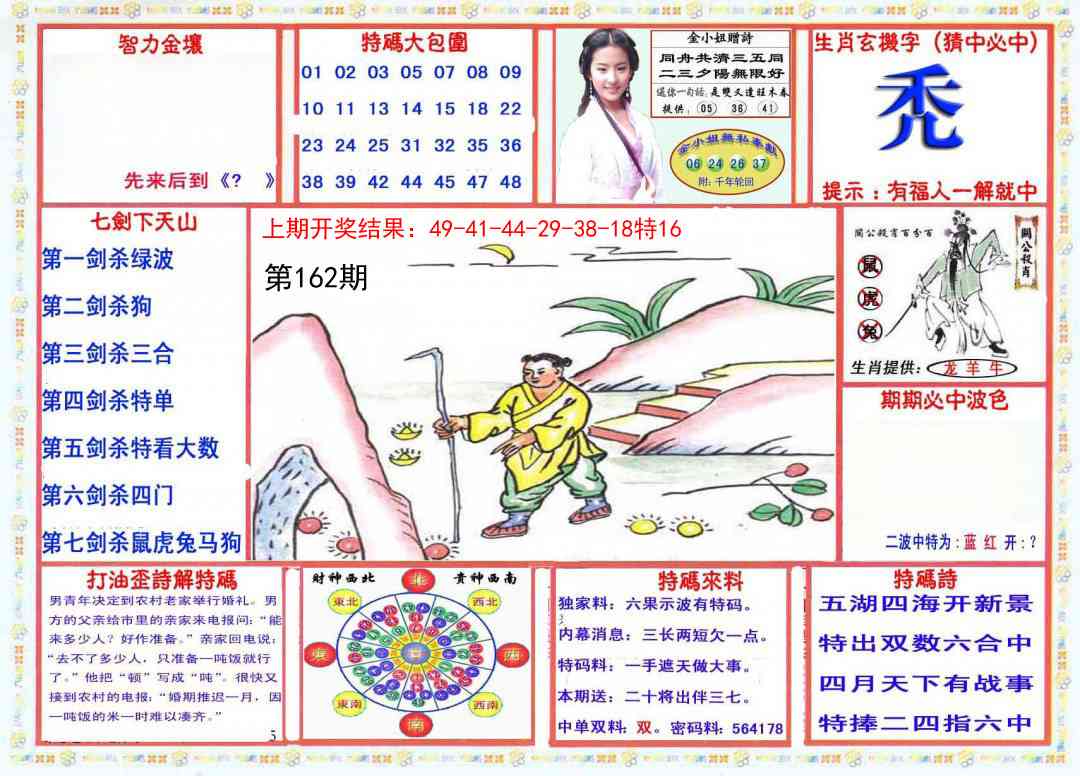 智力金壤
先来后到《? 》
特碼大包圍
01 02 03 05 07 08 09
10 11 13 14 15 18 22
23 24 25 31 32 35 36
38 39 42 44 45 47 48
金小姐贈詩
同舟共濟三五同
二三夕陽無限好
送你一句話:是雙又逢旺木春
提供: 05 36 41
金小姐無私奉獻
06 24 26 37
附:千年轮回
生肖玄機字(猜中必中)
秃
提示:有福人一解就中
七劍下天山
第一剑杀绿波
第二剑杀狗
第三剑杀三合
第四剑杀特单
第五剑杀特看大数
第六剑杀四门
第七剑杀鼠虎兔马狗
上期开奖结果: 49-41-44-29-38-18特16
第162期
關公殺肖百分百
關公殺肖
鼠
虎
兔
生肖提供: 龙 羊 牛
期期必中波色
二波中特为: 蓝 红 开:?
打油歪詩解特碼
男青年决定到农村老家举行婚礼。男
方的父亲给市里的亲家来电报问:“能
来多少人? 好作准备。”亲家回电说:
“去不了多少人,只准备一吨饭就行
了。”他把“顿”写成“吨”。很快又
接到农村的电报:“婚期推迟一月,因
一吨饭的米一时难以凑齐。”
5
財神西北
貴神西南
北
東北
西北
西
東南
西南
南
特碼來料
独家料: 六果示波有特码。
内幕消息: 三长两短欠一点。
特码料: 一手遮天做大事。
本期送: 二十将出伴三七。
中单双料: 双。 密码料: 564178
特碼詩
五湖四海开新景
特出双数六合中
四月天下有战事
特捧二四指六中